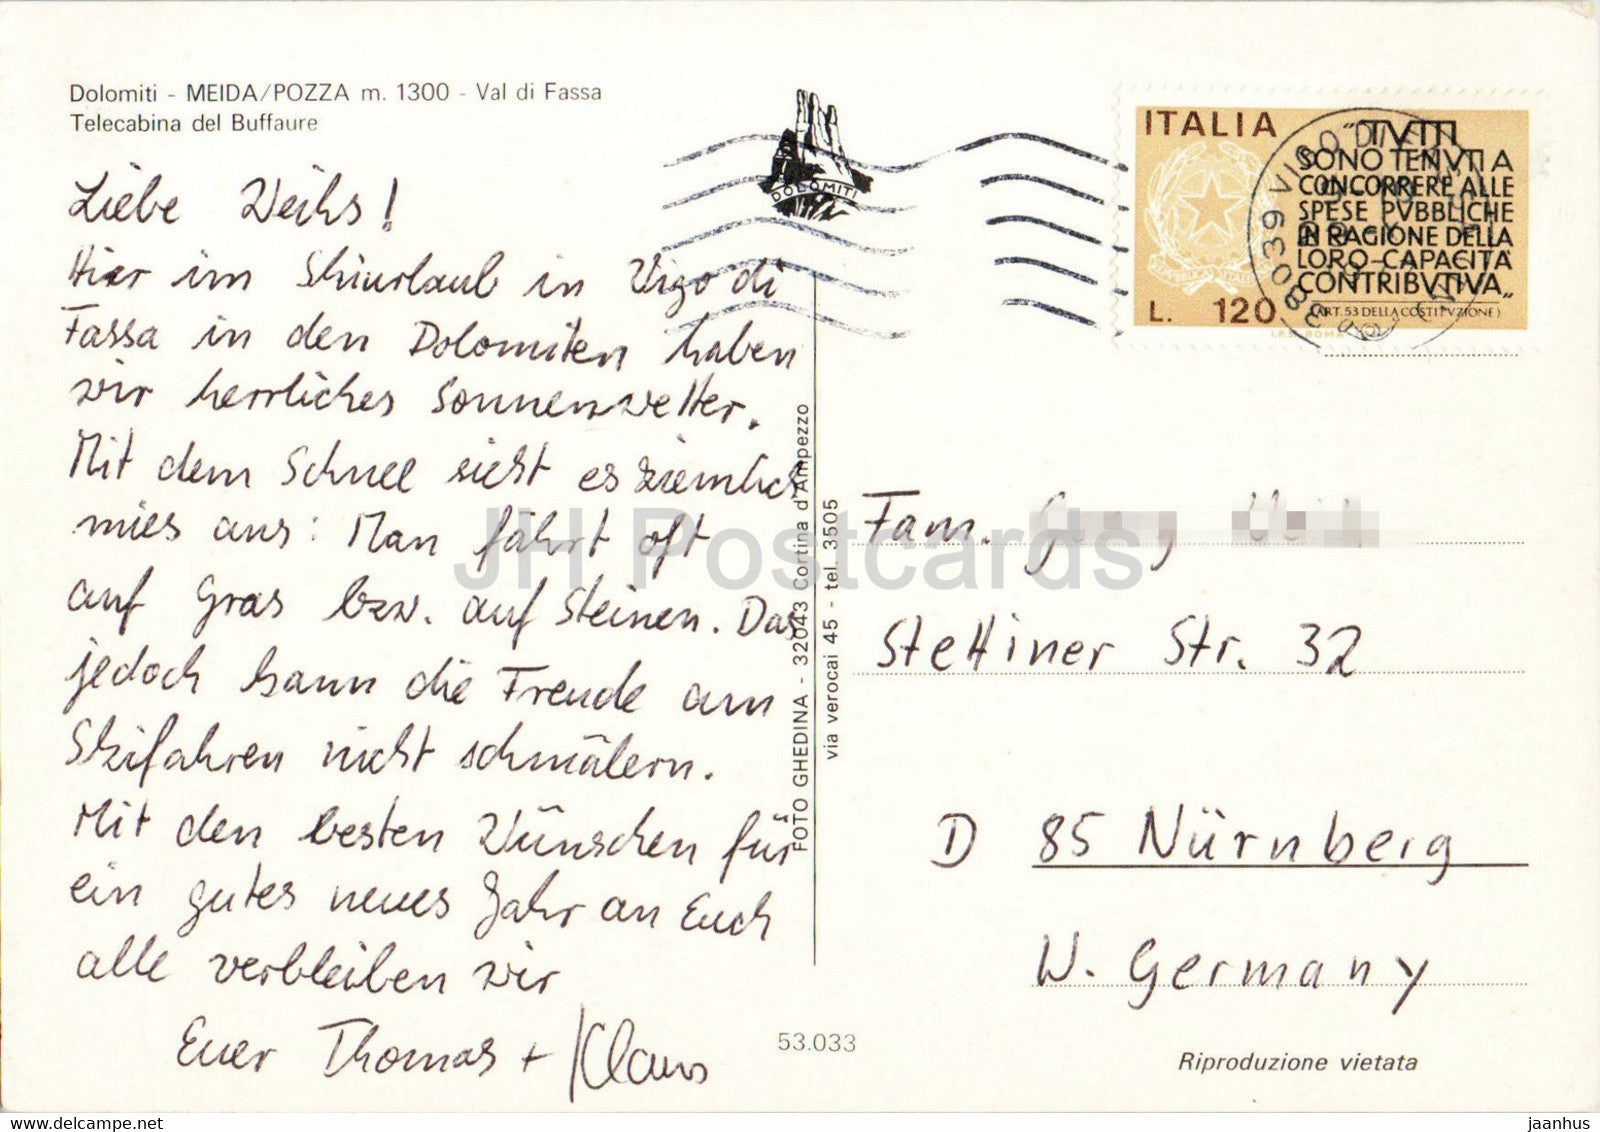 Dolomiti - MEIDA/POZZA m. 1300 - Val di Fassa
Telecabina del Buffaure
Liebe Weihs!
Hier im Skiurlaub in Vigo di
Fassa in den Dolomiten haben
wir herrliches Sonnenwetter.
Mit dem Schnee sieht es ziemlich
mies aus: Man fährt oft
auf Gras bzw. auf Steinen. Das
jedoch kann die Freude am
Skifahren nicht schmälern.
Mit den besten Wünschen für
ein gutes neues Jahr an Euch
alle verbleiben wir
Euer Thomas + Klaus
DOLOMITI
FOTO GHEDINA - 32043 Cortina d'Ampezzo
via verocai 45 - tel. 3505
53.033
ITALIA
"TVTTI
SONO TENVTI A
CONCORRERE ALLE
SPESE PVBBLICHE
IN RAGIONE DELLA
LORO CAPACITÀ
CONTRIBVTIVA"
(ART. 53 DELLA COSTITVZIONE)
L. 120
38039 VIGO DI
Fam.
Stettiner Str. 32
D 85 Nürnberg
W. Germany
Riproduzione vietata
JH Postcards
HipPostcard.com
jaanhus